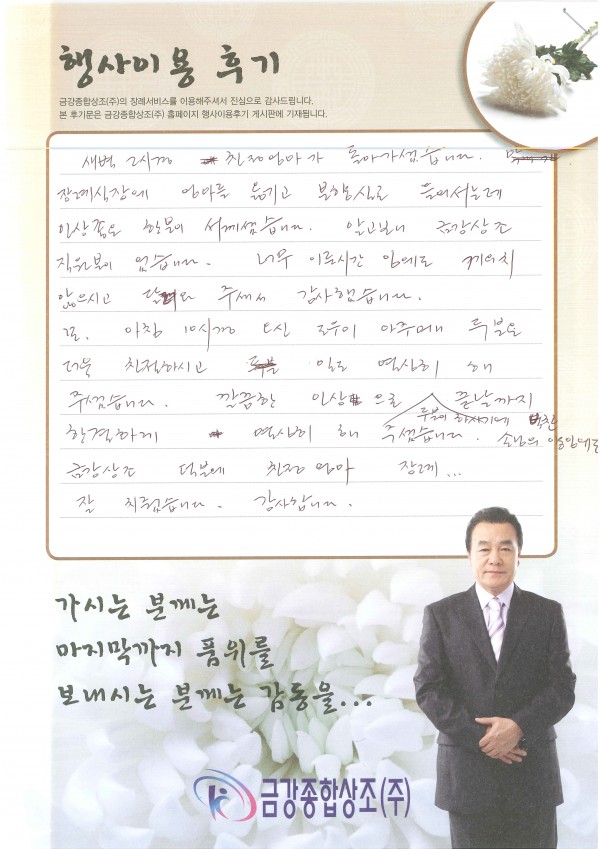 행사이용 후기
금강종합상조(주)의 장례서비스를 이용해주셔서 진심으로 감사드립니다.
본 후기문은 금강종합상조(주) 홈페이지 행사이용후기 게시판에 기재됩니다.
새벽 2시경 친정엄마가 돌아가셨습니다.
장례식장에 엄마를 옮기고 분향실로 들어서는데
인상좋은 한분이 서계셨습니다. 알고보니 금강상조
직원분이 었습니다. 너무 이른시간 임에도
않으시고 달려와 주셔서 감사했습니다.
또. 아침 10시경 오신 도우미 아주머니 두분은
더욱 친절하시고 일도 열심히 해
주셨습니다. 깔끔한 인상으로 끝날까지
두분이 하시기에 벅찬
한결하게 열심히 해 주셨습니다. 손님의 수임에도
금강상조 덕분에 친정엄마 장례...
잘 치렀습니다. 감사합니다.
가시는 분께는
마지막까지 품위를
보내시는 분께는 감동을...
금강종합상조(주)